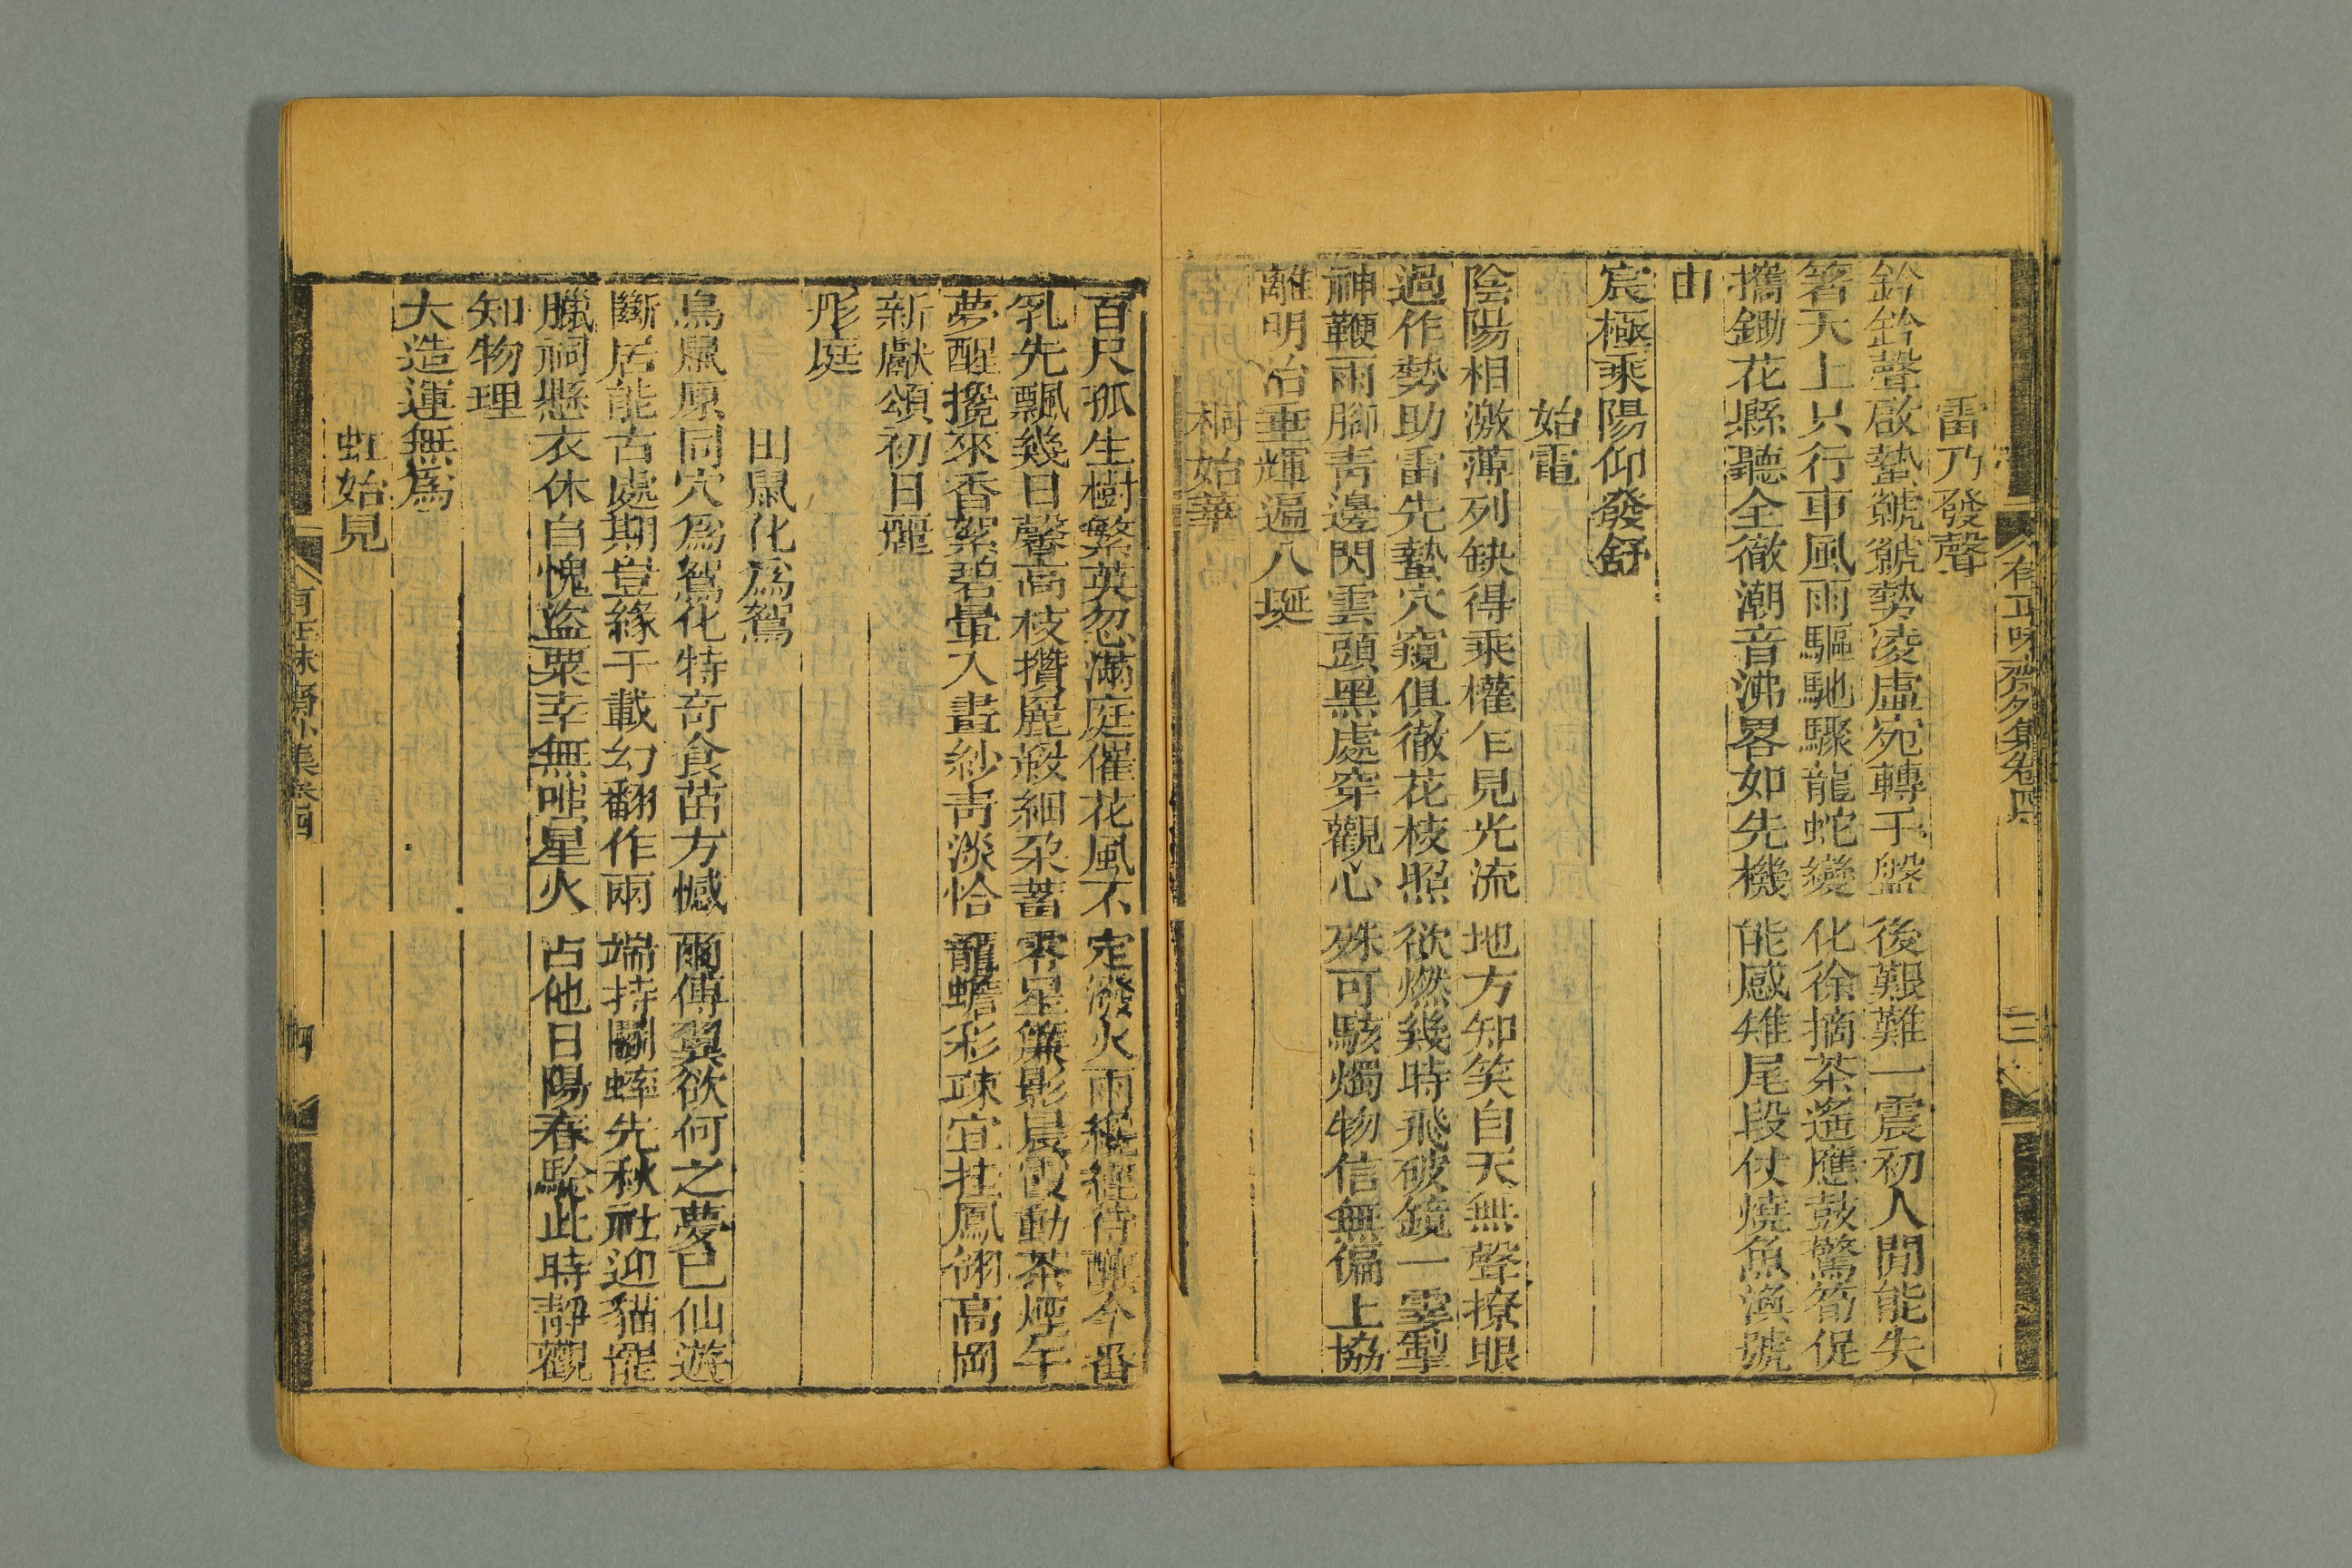 有正味齋外集卷四
三
雷乃發聲
鈴鈴聲啟蟄虩虩勢凌虛宛轉千盤後艱難一震初人間能失
箸天上只行車風雨驅馳驟龍蛇變化徐摘茶遙應鼓驚筍促
攜鋤花縣聽全徹潮音沸畧如先機能感雉尾段仗燒魚渙號
由
宸極乘陽仰發舒
始電
陰陽相激薄列缺得乘權乍見光流地方知笑自天無聲撩眼
過作勢助雷先蟄穴窺俱徹花枝照欲燃幾時飛破鏡一霎掣
神鞭雨腳靑邊閃雲頭黑處穿觀心殊可駭燭物信無偏上協
離明冶重輝遍八埏
桐始華
百尺孤生樹繁英忽滿庭催花風不定潑火雨纔經待釀今番
乳先飄幾日馨高枝攢麗緞細朶蓄零星簾影晨霞動茶煙午
夢醒攪來香絮碧暈入畫紗靑淡恰龍蟾彩疎宜挂鳳翎高岡
新獻頌初日麗
彤庭
田鼠化爲鴽
鳥鼠原同穴爲鴽化特奇食苗方憾爾傅翼欲何之夢已仙遊
斷居能古處期豈緣千載幻翻作兩端持鬬蟀先秋社迎貓罷
臘祠懸衣休自愧盜粟幸無唯星火占他日陽春驗此時靜觀
知物理
大造運無爲
虹始見
有正味齋外集卷四
四